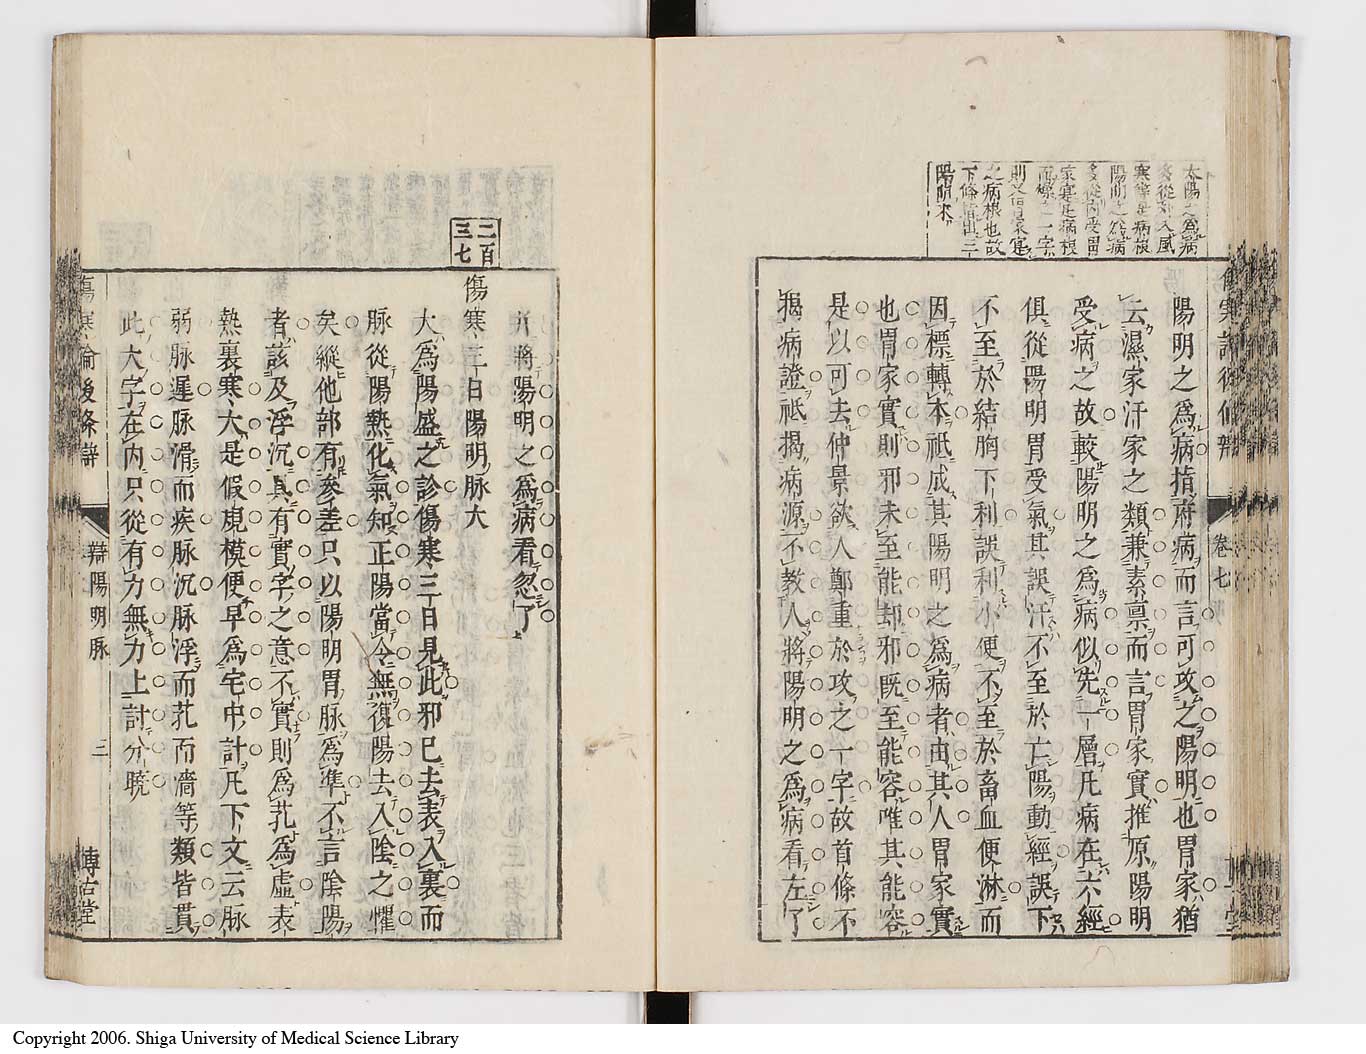 太陽之爲病
多從外入風
寒等是病根
陽明之爲病
多從内受胃
家寔是病根
而標一一字
則又信胃家寔
之病根也故
下條指出三
陽明來
陽明之爲病指府病而言可攻之陽明也胃家猶
云濕家汗家之類兼素禀而言胃家實推原陽明
受病之故較陽明之爲病似先一層凡病在六經
俱從陽明胃受氣其誤汗不至於亡陽動經誤下
不至於結胸下利誤利小便不至於畜血便淋而
因標轉本祗成其陽明之爲病者由其人胃家實
也胃家實則邪未至能却邪既至能容唯其能容
是以可去仲景欲人鄭重於攻之一字故首條不
揭病證祗揭病源不教人將陽明之爲病看左了
卷七
并將陽明之爲病看忽了
二百
三七
傷寒三日陽明脉大
大爲陽盛之診傷寒三日見此邪已去表入裏而
脉從陽熱化氣知正陽當令無復陽去入陰之懼
矣縱他部有參差只以陽明胃脉爲準不言陰陽
者該及浮沉具有實字之意不實則爲芤爲虛表
熱裏寒大是假規模便早爲宅中計凡下文云脉
弱脉遲脉滑而疾脉沉脉浮而芤而濇等類皆貫
此大字在内只從有力無力上討分曉
傷寒論後條辯
辯陽明脉
三
博古堂
Copyright 2006. Shiga University of Medical Science Library